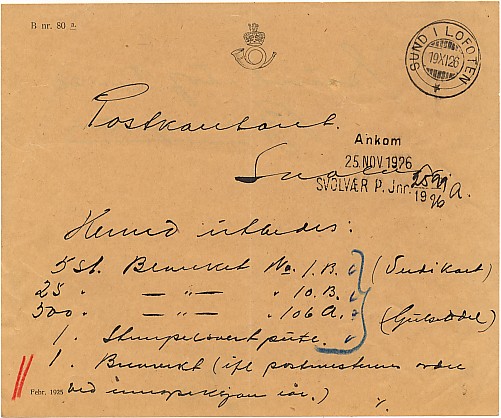 B nr. 80 a.
SUND I LOFOTEN
19 XI 26
Postkontoret.
Ankom
25 NOV. 1926
SVOLVÆR P. Jnr. 2591 a.
19 26
Herved utbedes:
5 St. Blankett No 1. B.
25 " — " — " 10. B.
300 " — " — " 106 a.
1. Stempelsvertepute.
1. Blankett (ifl postmesterens ordre
ved inspeksjon iår.) %.
Febr. 1925